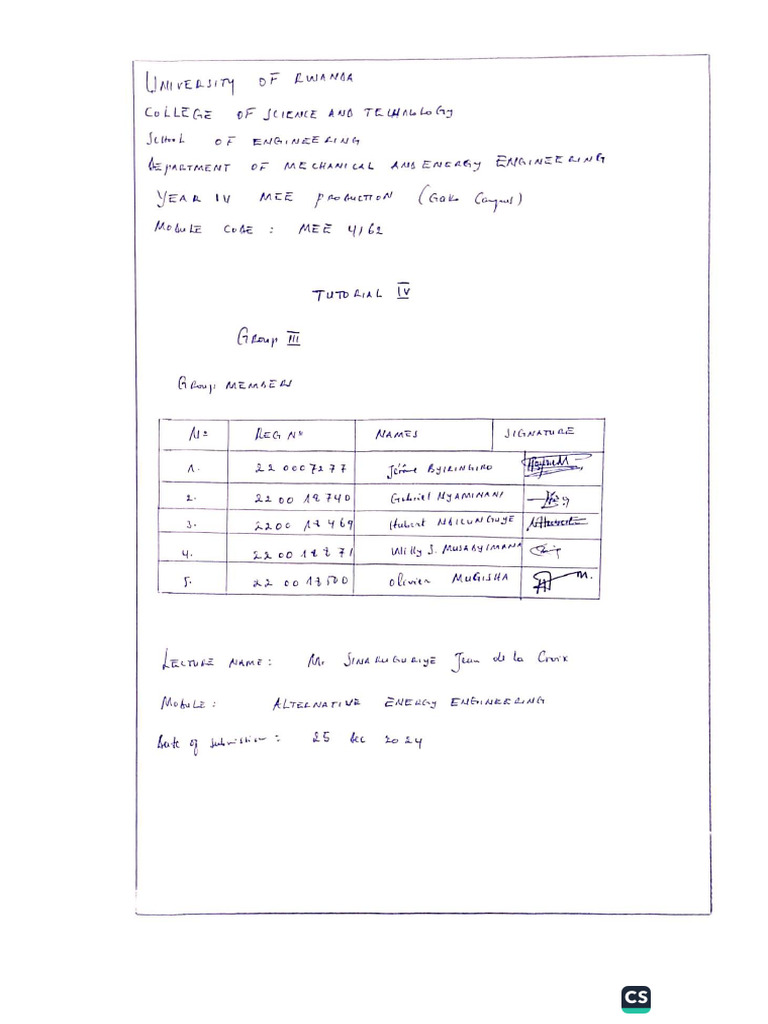 UNIVERSITY OF RWANDA
COLLEGE OF SCIENCE AND TECHNOLOGY
SCHOOL OF ENGINEERING
DEPARTMENT OF MECHANICAL AND ENERGY ENGINEERING
YEAR IV MEE PRODUCTION (Gako Campus)
MODULE CODE : MEE 4162
TUTORIAL IV
GROUP III
GROUP MEMBERS
No REG No NAMES SIGNATURE
1. 220007277 Jérôme BYIRINGIRO
2. 220018740 Gabriel NYAMINANI
3. 220018469 Hubert NDIKUNGUYE
4. 220018871 Willy J. MUSABYIMANA
5. 220018500 Olivier MUGISHA
LECTURE NAME: Mr SINARUGURIYE Jean de la Croix
MODULE: ALTERNATIVE ENERGY ENGINEERING
Date of submission: 25 Dec 2024
CS